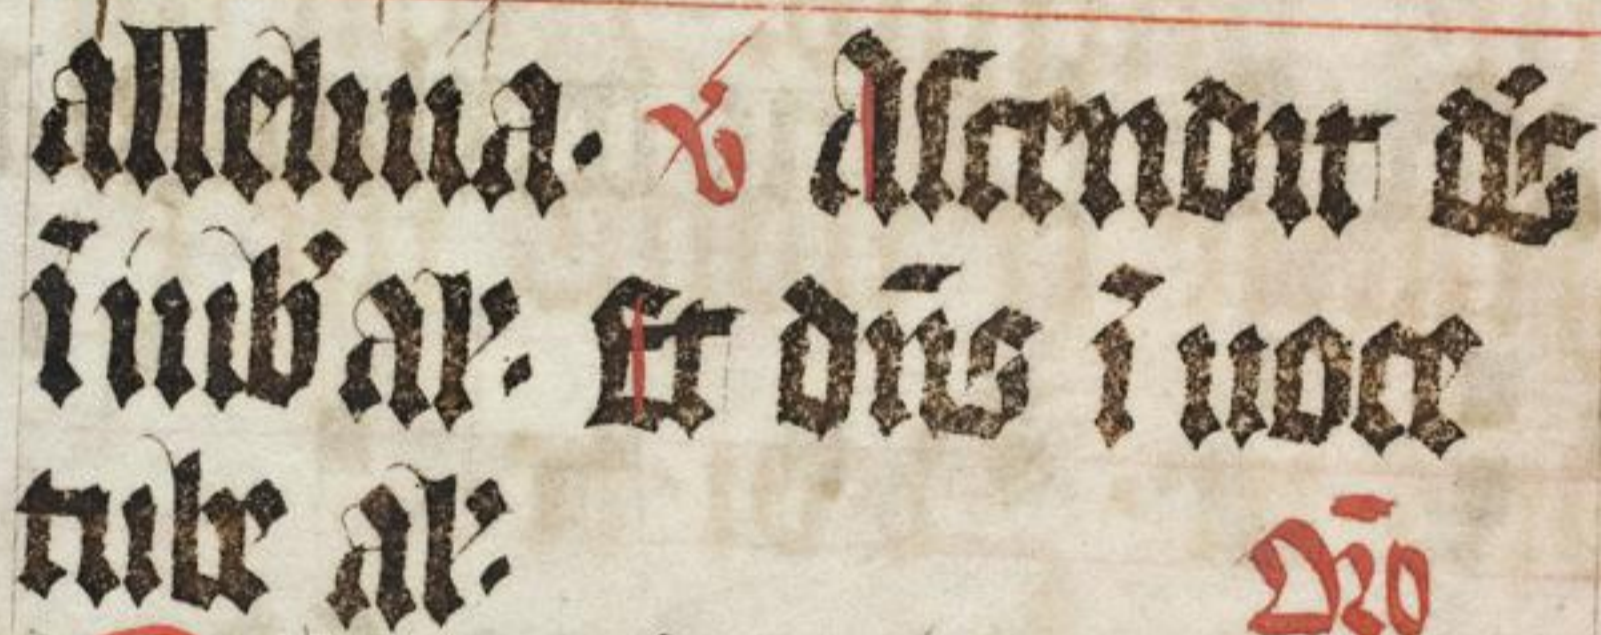 alleluia. ℣ Ascendit ds̄
ī iubꝰ alꝰ. Et dn̄s ī uoce
tube alꝰ. Or̄o